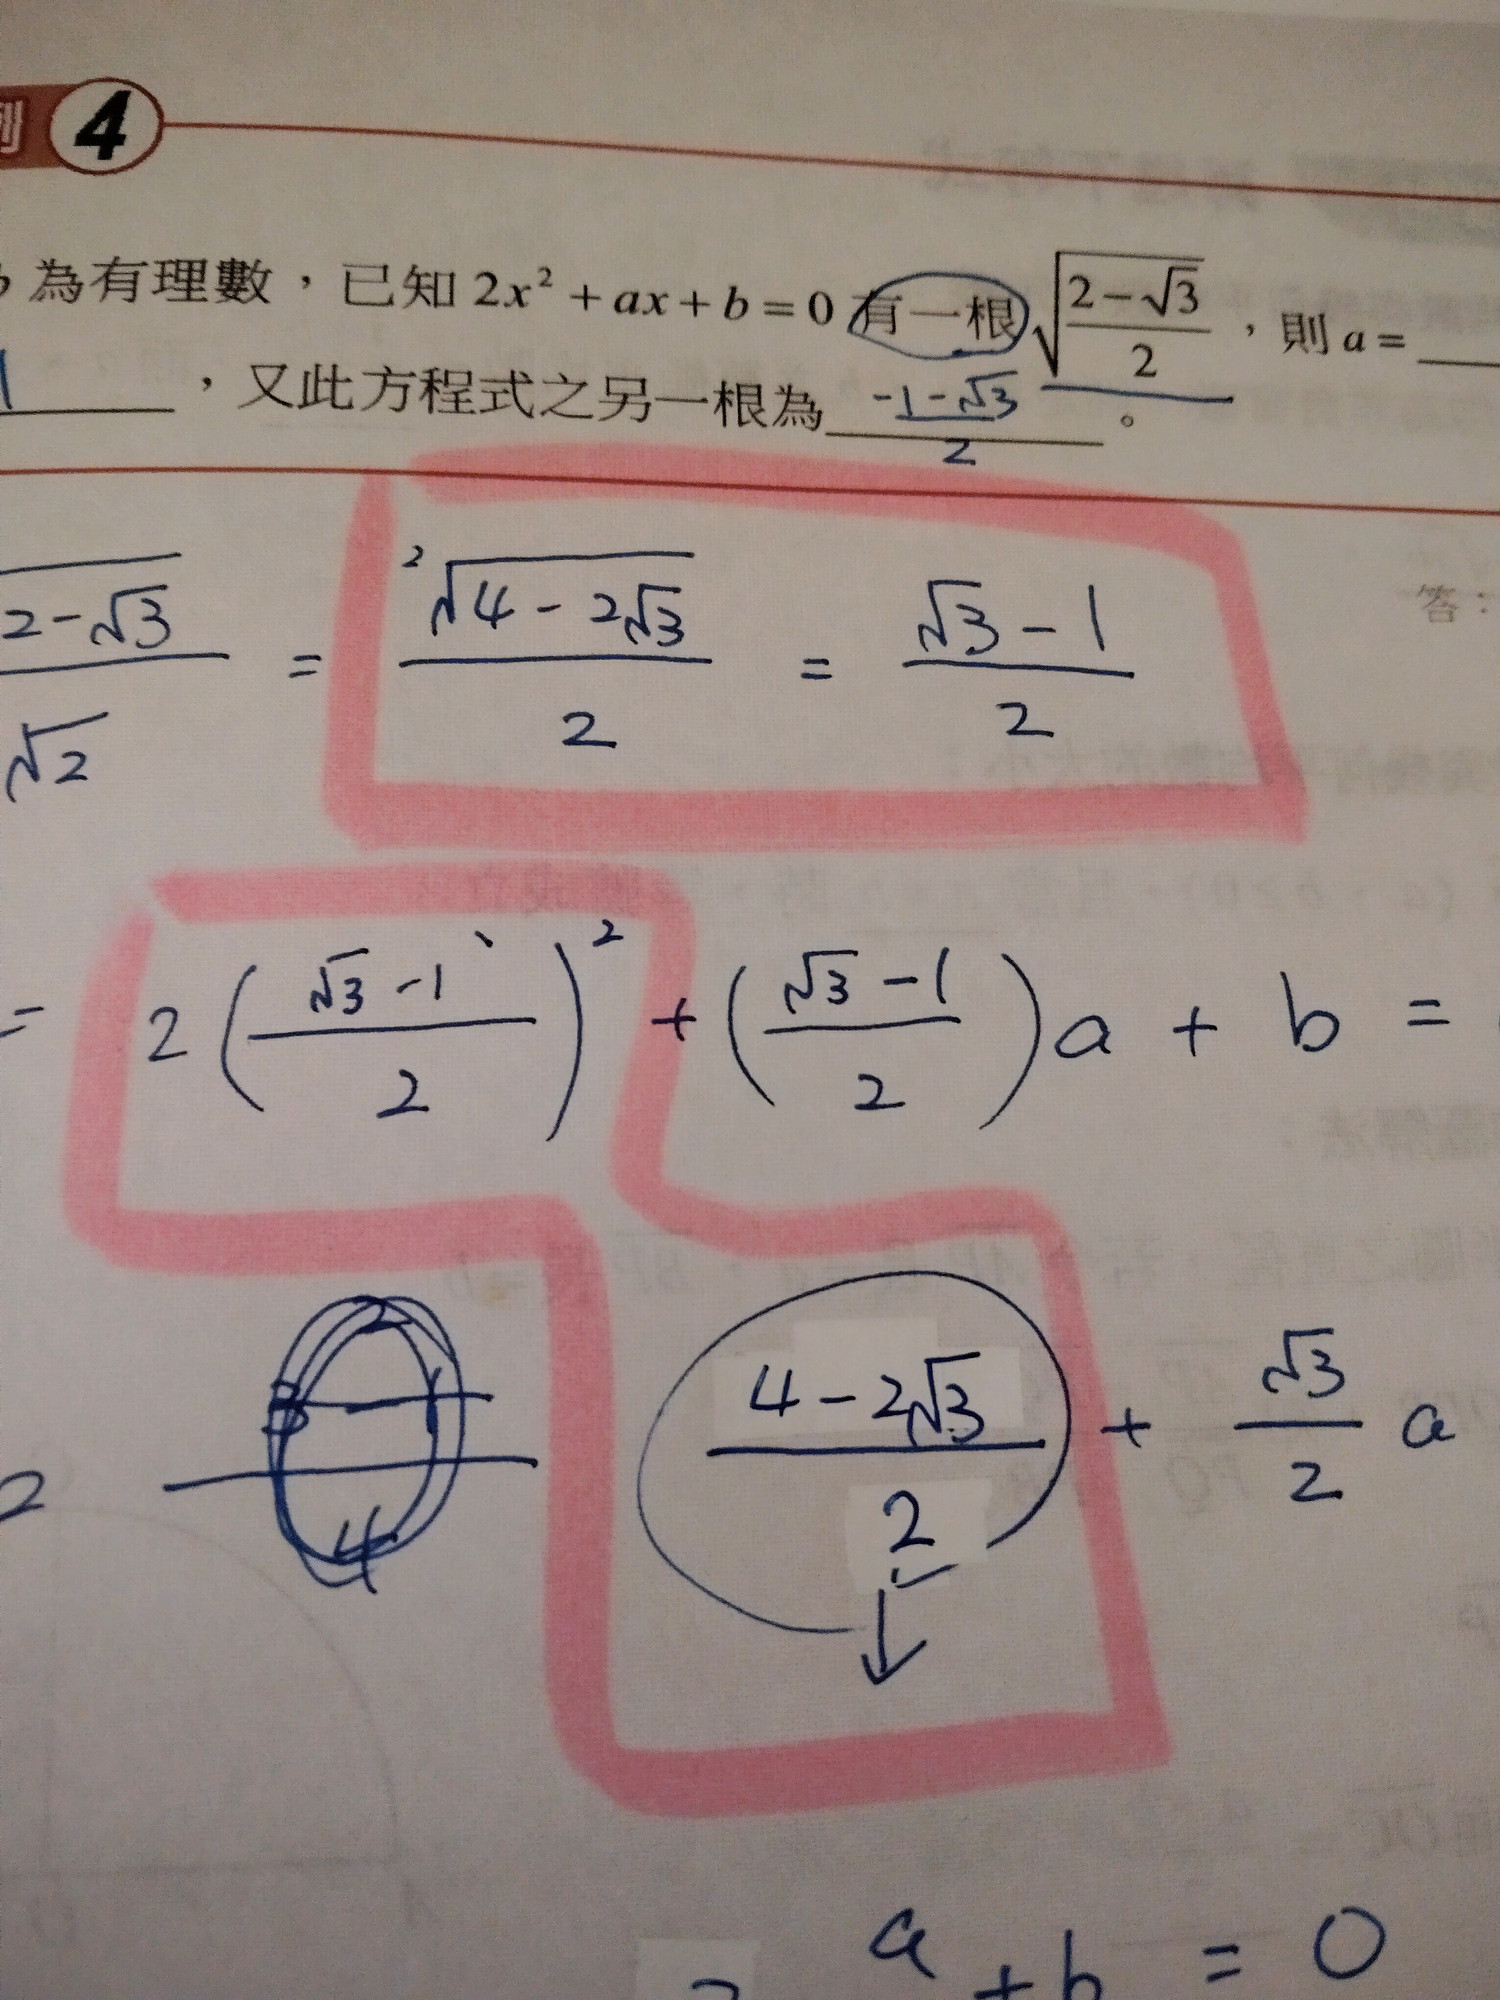 例 4
b 為有理數，已知 2x² + ax + b = 0 有一根 √((2-√3)/2) ，則 a = ___
1 ，又此方程式之另一根為 (-1-√3)/2 。
答：
√(2-√3)/√2 = ²√(4-2√3)/2 = (√3-1)/2
= 2((√3-1)/2)² + ((√3-1)/2)a + b =
2 (4-2√3)/2 + √3/2 a
↓
a + b = 0